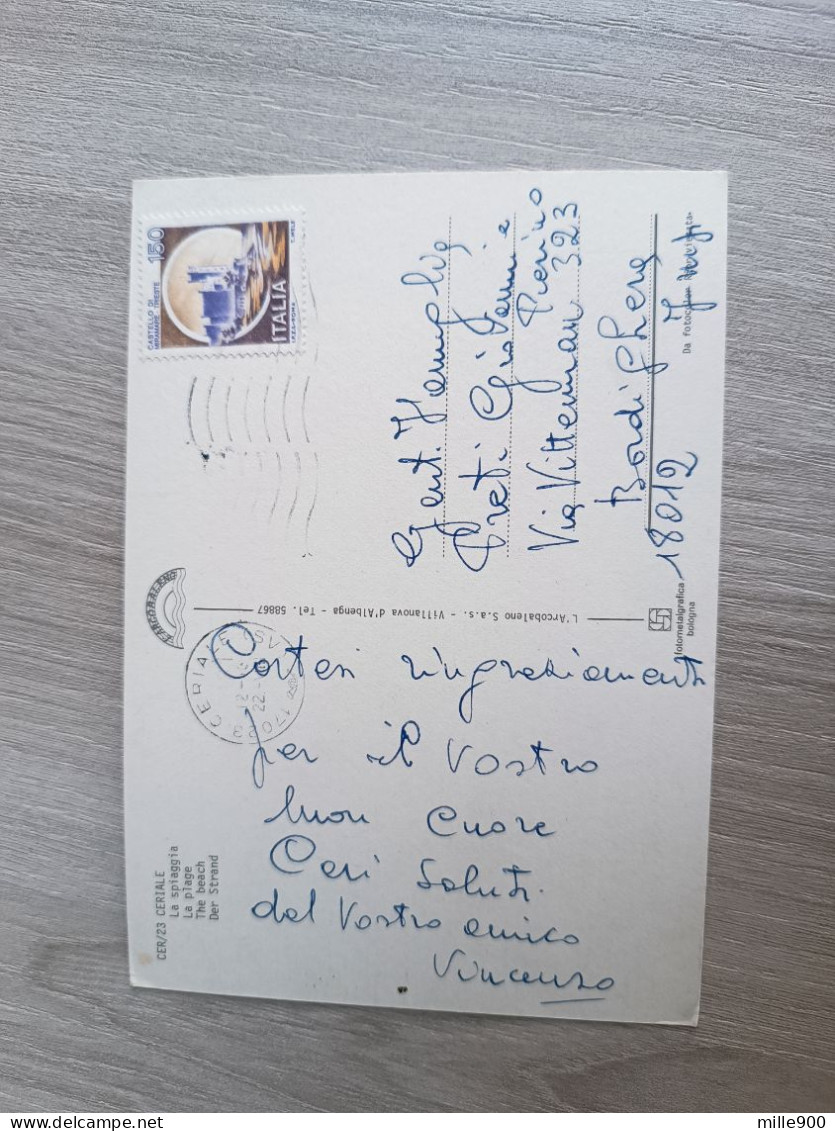 CER/23 CERIALE
La spiaggia
La plage
The beach
Der Strand
ARCOBALENO
CERIALE (SV)
Cortesi ringraziamenti
per il Vostro
buon Cuore
Cari Saluti
dal Vostro amico
Vincenzo
L'Arcobaleno S.a.s. - Villanova d'Albenga - Tel. 58867
fotometalgrafica
bologna
150
CASTELLO DI
MIRAMARE TRIESTE
ITALIA
I.P.Z.S. ROMA
Gent. Famiglia
Preti Giovanni e
Pierino
Via Vitt. Eman 323
Bordighera
18012
Da fotocolor
mille900